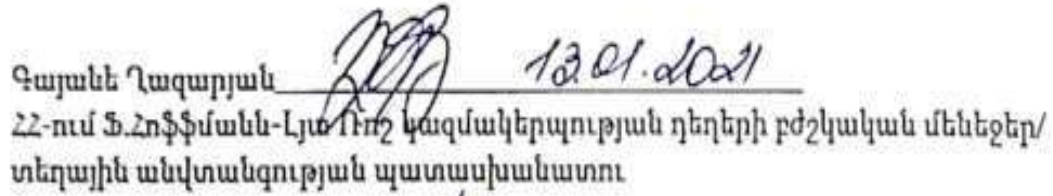 Գայանե Ղազարյան 13.01.2021
ՀՀ-ում Ֆ.Հոֆֆմանն-Լյա Ռոշ կազմակերպության դեղերի բժշկական մենեջեր/
տեղային անվտանգության պատասխանատու